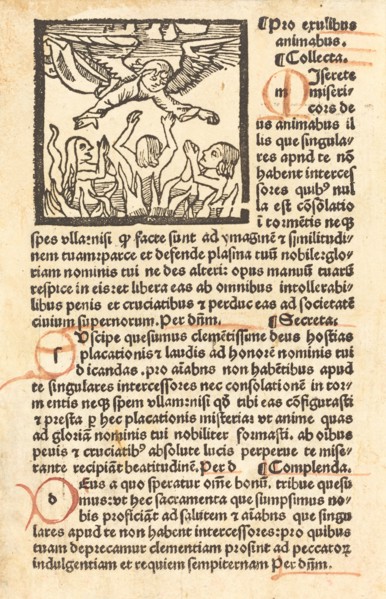 ¶Pro exulibus
animabus.
¶Collecta.
Iserere
m miseri⸗
cors de
us animabus il
lis que singula⸗
res apud te nō
habent interces
sores quibꝰ nul
la est cōsolatio
ī tormētis neqꝫ
spes vlla:nisi qꝫ facte sunt ad ymaginē ⁊ similitudi⸗
nem tuam:parce et defende plasma tuū nobile:glo⸗
riam nominis tui ne des alteri: opus manuū tuarū
respice in eis:et libera eas ab omnibus intollerabi⸗
libus penis et cruciatibus ⁊ perduc eas ad societatē
ciuium supernorum. Per dn̄m. ¶Secreta.
Vscipe quesumus clemētissime deus hostias
s placationis ⁊ laudis ad honorē nominis tui
dicandas . pro aīabus non habētibus apud
te singulares intercessores nec consolationē in tor⸗
mentis neqꝫ spem vllam:nisi qꝫ tibi eas cōfigurasti
⁊ presta ꝑ hec placationis misteria: vt anime quas
ad gloriā nominis tui nobiliter formasti. ab oībus
penis ⁊ cruciatibꝰ absolute lucis perpetue te mise⸗
rante recipiāt beatitudinē. Per d ¶Complenda.
Eus a quo speratur om̄e bonū. tribue quesu
d mus: vt hec sacramenta que sumpsimus no⸗
bis proficiāt ad salutem ⁊ aīabus que singu
lares apud te non habent intercessores: pro quibus
tuam deprecamur clementiam prosint ad peccatoꝝ
indulgentiam et requiem sempiternam Per dn̄m.